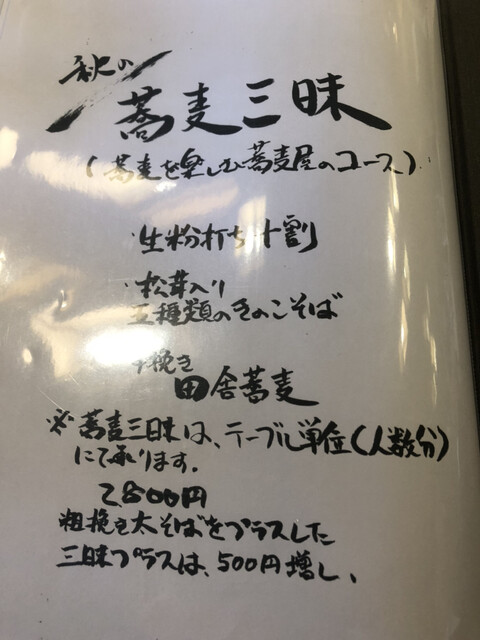 秋の
蕎麦三昧
(蕎麦を楽しむ蕎麦屋のコース)
・生粉打ち十割
・松茸入り
五種類のきのこそば
手挽き
田舎蕎麦
※蕎麦三昧は、テーブル単位(人数分)
にて承ります。
2800円
粗挽き太そばをプラスした
三昧プラスは、500円増し、